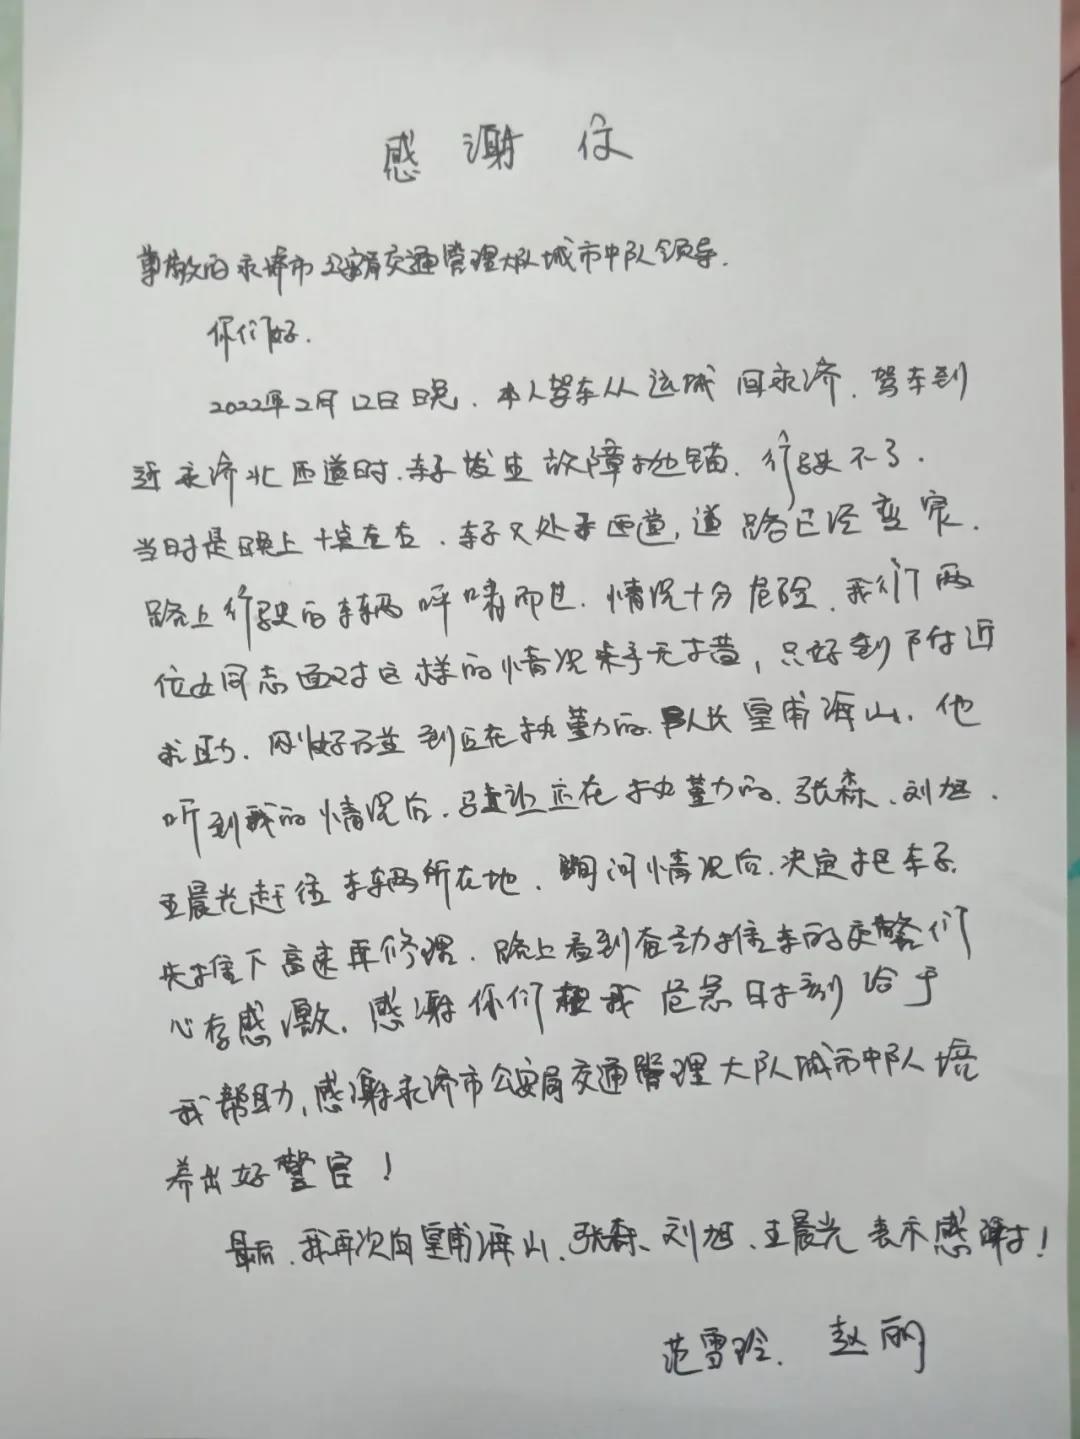 感谢信
尊敬的永济市公安局交通管理大队城市中队领导.
你们好.
2022年2月12日晚.本人驾车从运城回永济.驾车到
近永济北匝道时.车子发生故障抛锚.行驶不了.
当时是晚上十点左右.车子又处于匝道,道路已经变窄.
路上行驶的车辆呼啸而过.情况十分危险.我们两
位女同志面对这样的情况束手无措,只好到附近
求助.刚好碰到正在执勤的队长皇甫海山.他
听到我的情况后.马上让正在执勤的.张森、刘旭.
王晨光赶往车辆所在地.询问情况后.决定把车子
先推下高速再修理.路上看到奋力推车的交警们
心存感激.感谢你们在我危急时刻给予
我帮助,感谢永济市公安局交通管理大队城市中队培
养出好警官!
最后.我再次向皇甫海山.张森、刘旭、王晨光表示感谢!
范雪玲.赵丽